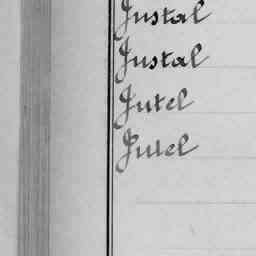 Justal
Justal
Jutel
Jutel